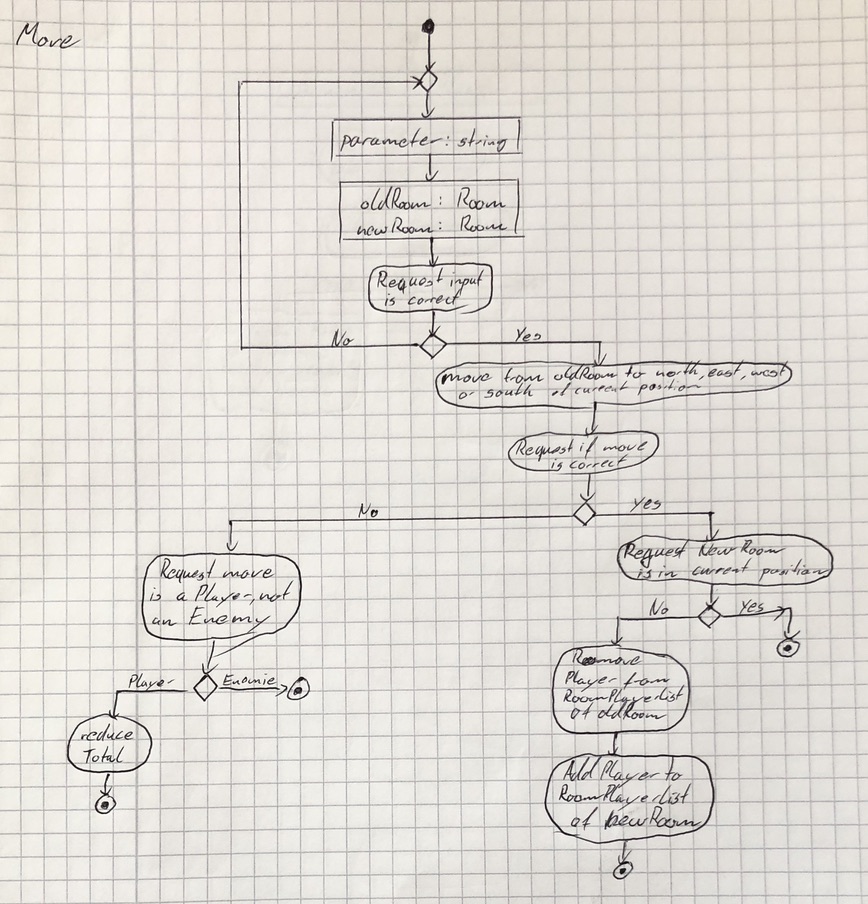 Move
parameter: string
oldRoom: Room
newRoom: Room
Request input
is correct
No
Yes
move from oldRoom to north, east, west
or south of current position
Request if move
is correct
No
Yes
Request move
is a Player, not
an Enemy
Request NewRoom
is in current position
No
Yes
Player
Enemie
Remove
Player from
RoomPlayerlist
of oldRoom
reduce
Total
Add Player to
RoomPlayerlist
of newRoom